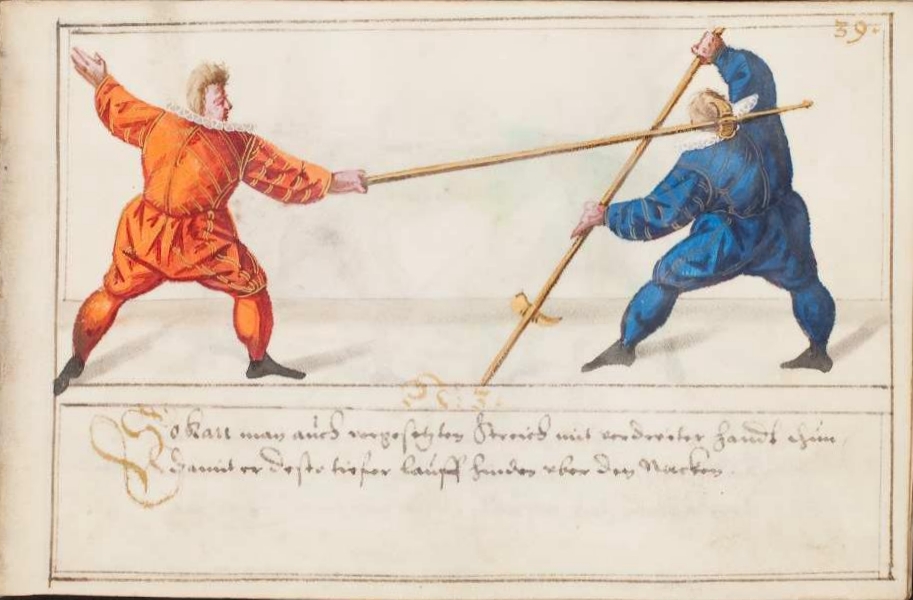 39.
So kan man auch vorgesetzten Streich mit verderetter handt thun,
Damit er deste tieffer lauff hinden vber den Nacken.